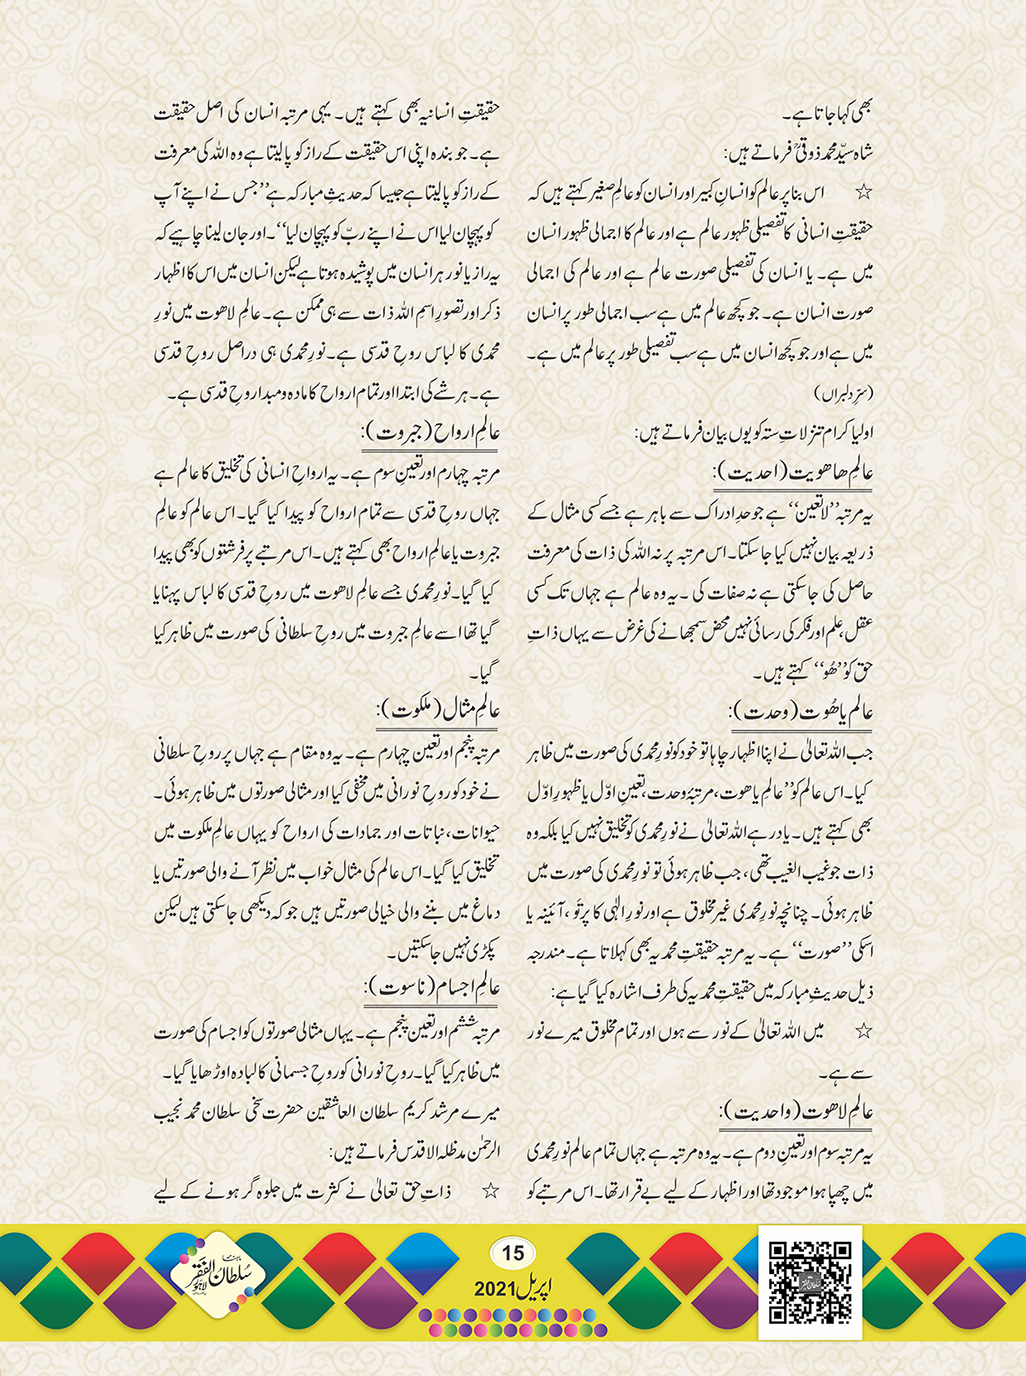 بھی کہا جاتا ہے۔
شاہ سیّد محمد ذوقیؒ فرماتے ہیں:
☆ اس بنا پر عالم کو انسانِ کبیر اور انسان کو عالمِ صغیر کہتے ہیں کہ
حقیقتِ انسانی کا تفصیلی ظہور عالم ہے اور عالم کا اجمالی ظہور انسان
میں ہے۔ یا انسان کی تفصیلی صورت عالم ہے اور عالم کی اجمالی
صورت انسان ہے۔ جو کچھ عالم میں ہے سب اجمالی طور پر انسان
میں ہے اور جو کچھ انسان میں ہے سب تفصیلی طور پر عالم میں ہے۔
(سرِّ دلبراں)
اولیا کرام تنزلاتِ ستہ کو یوں بیان فرماتے ہیں:
عالمِ ھاھویت (احدیت):
یہ مرتبہ ’’لاتعین‘‘ ہے جو حدِ ادراک سے باہر ہے جسے کسی مثال کے
ذریعہ بیان نہیں کیا جا سکتا۔ اس مرتبہ پر نہ اللہ کی ذات کی معرفت
حاصل کی جا سکتی ہے نہ صفات کی ۔ یہ وہ عالم ہے جہاں تک کسی
عقل، علم اور فکر کی رسائی نہیں محض سمجھانے کی غرض سے یہاں ذاتِ
حق کو ’’ھُو‘‘ کہتے ہیں۔
عالم یاھُوت (وحدت):
جب اللہ تعالیٰ نے اپنا اظہار چاہا تو خود کو نورِ محمدی کی صورت میں ظاہر
کیا۔ اس عالم کو ’’عالمِ یاھوت، مرتبۂ وحدت، تعینِ اوّل یا ظہورِ اوّل
بھی کہتے ہیں۔ یاد رہے اللہ تعالیٰ نے نورِ محمدی کو تخلیق نہیں کیا بلکہ وہ
ذات جو غیب الغیب تھی، جب ظاہر ہوئی تو نورِ محمدی کی صورت میں
ظاہر ہوئی۔ چنانچہ نورِ محمدی غیر مخلوق ہے اور نورِ الٰہی کا پرتَو، آئینہ یا
اسکی ’’صورت‘‘ ہے۔ یہ مرتبہ حقیقتِ محمدیہ بھی کہلاتا ہے۔ مندرجہ
ذیل حدیثِ مبارکہ میں حقیقتِ محمدیہ کی طرف اشارہ کیا گیا ہے:
☆ میں اللہ تعالیٰ کے نور سے ہوں اور تمام مخلوق میرے نور
سے ہے۔
عالمِ لاھوت (واحدیت):
یہ مرتبہ سوم اور تعینِ دوم ہے۔ یہ وہ مرتبہ ہے جہاں تمام عالم نورِ محمدی
میں چھپا ہوا موجود تھا اور اظہار کے لیے بے قرار تھا۔ اس مرتبے کو
حقیقتِ انسانیہ بھی کہتے ہیں۔ یہی مرتبہ انسان کی اصل حقیقت
ہے۔ جو بندہ اپنی اس حقیقت کے راز کو پا لیتا ہے وہ اللہ کی معرفت
کے راز کو پا لیتا ہے جیسا کہ حدیثِ مبارکہ ہے ’’جس نے اپنے آپ
کو پہچان لیا اس نے اپنے ربّ کو پہچان لیا‘‘۔ اور جان لینا چاہیے کہ
یہ راز یا نور ہر انسان میں پوشیدہ ہوتا ہے لیکن انسان میں اس کا اظہار
ذکر اور تصورِ اسمِ اللہ ذات سے ہی ممکن ہے۔ عالمِ لاھوت میں نورِ
محمدی کا لباس روحِ قدسی ہے۔ نورِ محمدی ہی دراصل روحِ قدسی
ہے۔ ہر شے کی ابتدا اور تمام ارواح کا مادہ و مبدا روحِ قدسی ہے۔
عالمِ ارواح (جبروت):
مرتبہ چہارم اور تعینِ سوم ہے۔ یہ ارواحِ انسانی کی تخلیق کا عالم ہے
جہاں روحِ قدسی سے تمام ارواح کو پیدا کیا گیا۔ اس عالم کو عالمِ
جبروت یا عالمِ ارواح بھی کہتے ہیں۔ اس مرتبے پر فرشتوں کو بھی پیدا
کیا گیا۔ نورِ محمدی جسے عالمِ لاھوت میں روحِ قدسی کا لباس پہنایا
گیا تھا اسے عالمِ جبروت میں روحِ سلطانی کی صورت میں ظاہر کیا
گیا۔
عالمِ مثال (ملکوت):
مرتبہ پنجم اور تعین چہارم ہے۔ یہ وہ مقام ہے جہاں پر روحِ سلطانی
نے خود کو روحِ نورانی میں مخفی کیا اور مثالی صورتوں میں ظاہر ہوئی۔
حیوانات، نباتات اور جمادات کی ارواح کو یہاں عالمِ ملکوت میں
تخلیق کیا گیا۔ اس عالم کی مثال خواب میں نظر آنے والی صورتیں یا
دماغ میں بننے والی خیالی صورتیں ہیں جو کہ دیکھی جا سکتی ہیں لیکن
پکڑی نہیں جا سکتیں۔
عالمِ اجسام (ناسوت):
مرتبہ ششم اور تعین پنجم ہے۔ یہاں مثالی صورتوں کو اجسام کی صورت
میں ظاہر کیا گیا۔ روحِ نورانی کو روحِ جسمانی کا لبادہ اوڑھایا گیا۔
میرے مرشد کریم سلطان العاشقین حضرت سخی سلطان محمد نجیب
الرحمٰن مدظلہ الاقدس فرماتے ہیں:
☆ ذاتِ حق تعالیٰ نے کثرت میں جلوہ گر ہونے کے لیے
ماہنامہ
سُلطانُ الفَقر
لاہور
15
اپریل 2021